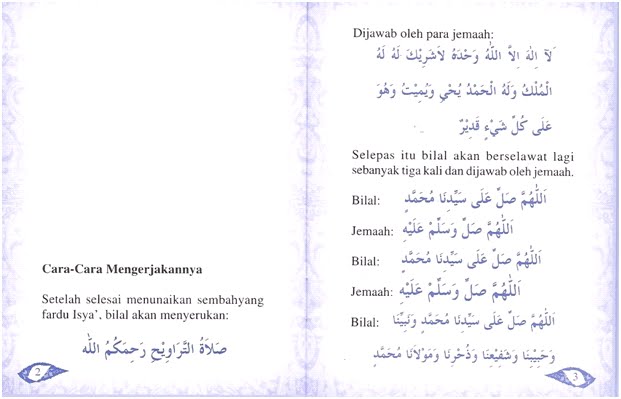 Cara-Cara Mengerjakannya
Setelah selesai menunaikan sembahyang
fardu Isya', bilal akan menyerukan:
صَلَاةُ التَّرَاوِيْحِ رَحِمَكُمُ اللّٰه
2
Dijawab oleh para jemaah:
لَآ اِلٰهَ اِلاَّ اللّٰهُ وَحْدَهُ لاَشَرِيْكَ لَهُ لَهُ
الْمُلْكُ وَلَهُ الْحَمْدُ يُحْيِ وَيُمِيْتُ وَهُوَ
عَلَى كُلِّ شَيْءٍ قَدِيْرٌ
Selepas itu bilal akan berselawat lagi
sebanyak tiga kali dan dijawab oleh jemaah.
Bilal: اَللّٰهُمَّ صَلِّ عَلَى سَيِّدِنَا مُحَمَّدٍ
Jemaah: اَللّٰهُمَّ صَلِّ وَسَلِّمْ عَلَيْهِ
Bilal: اَللّٰهُمَّ صَلِّ عَلَى سَيِّدِنَا مُحَمَّدٍ
Jemaah: اَللّٰهُمَّ صَلِّ وَسَلِّمْ عَلَيْهِ
Bilal: اَللّٰهُمَّ صَلِّ عَلَى سَيِّدِنَا مُحَمَّدٍ وَنَبِيِّنَا
وَحَبِيْبِنَا وَشَفِيْعِنَا وَذُخْرِنَا وَمَوْلَانَا مُحَمَّدٍ
3